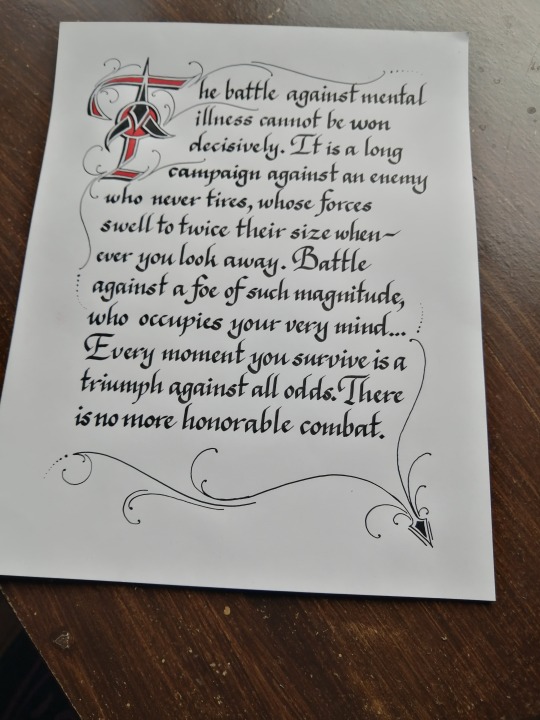 The battle against mental
illness cannot be won
decisively. It is a long
campaign against an enemy
who never tires, whose forces
swell to twice their size when~
ever you look away. Battle
against a foe of such magnitude,
who occupies your very mind...
Every moment you survive is a
triumph against all odds. There
is no more honorable combat.